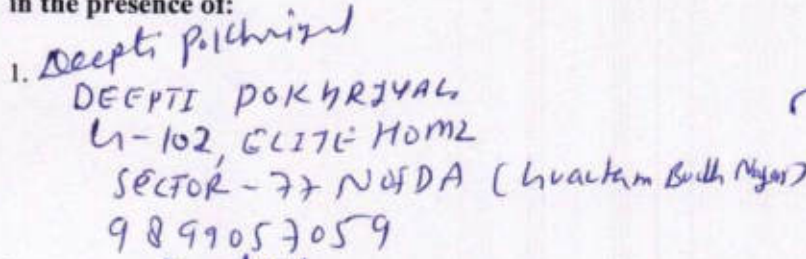 in the presence of:
1. Deepti Pokhriyal
DEEPTI POKHRIYAL
G-102, ELITE HOMZ
SECTOR-77 NOIDA (Guautam Budh Nagar)
9899057059